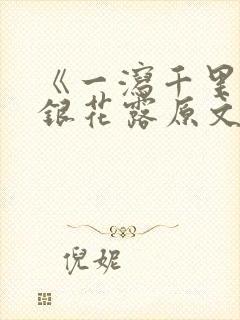 《一瀉千里
銀花露原文
倪妮